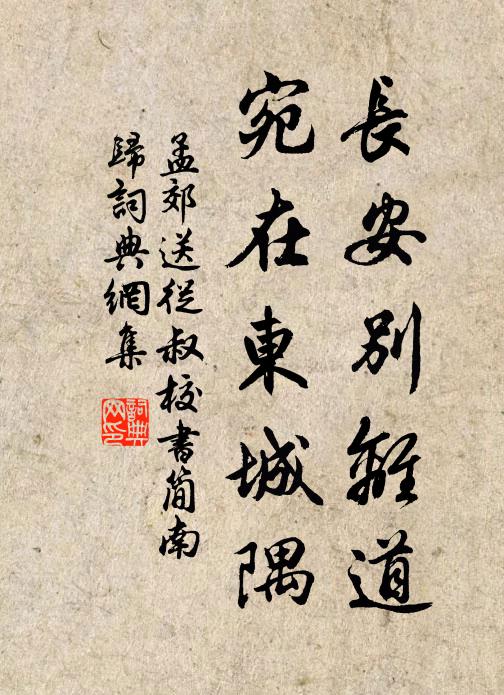 長安別離道
宛在東城隅
孟郊送從叔校書簡南
歸詞典網集
詞典
网印